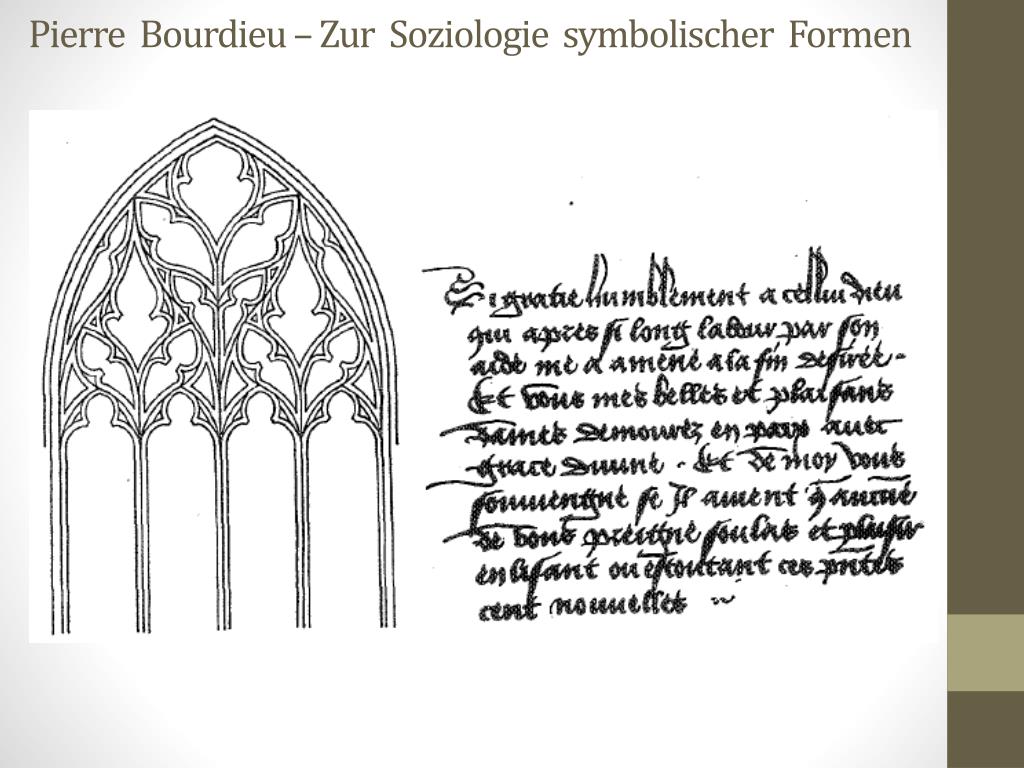 Pierre Bourdieu – Zur Soziologie symbolischer Formen
Si gratie humblement a cellui dieu
qui apres si long labour par son
aide me a amené a la fin desirée -
Et vous mes belles et plaisans
dames demourez en paix avec
grace divine . Et de moy vous
souviengne se Il avient aucune
de vous preigne soulas et plaisir
en lisant ou escoutant ces pntes
cent nouvelles